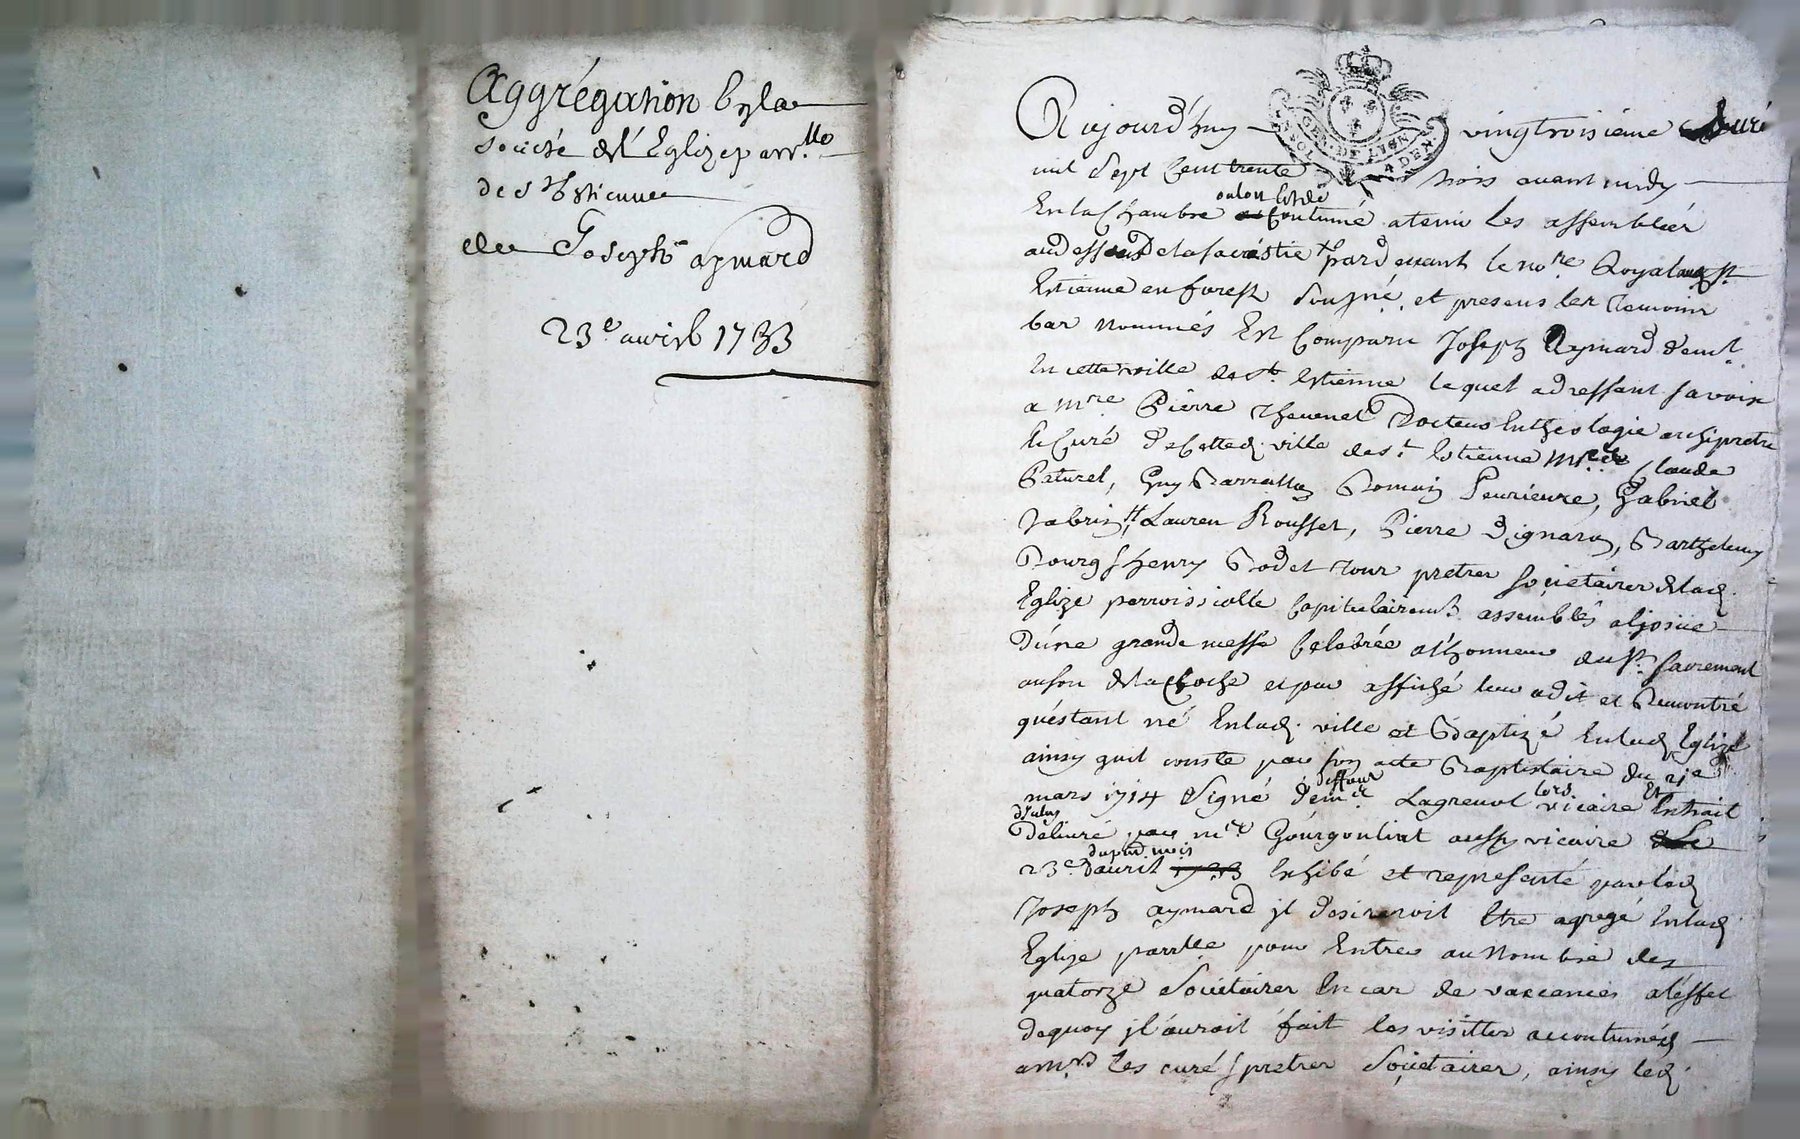 Aggrégation En la
societé de l'Eglize parr.lle
de St Estienne
de Joseph aymard
23.e avril 1733
Aujourd'huy vingtroisieme
mil sept Cent trente trois avant midy
En la Chambre ou lon est de Coutumé a tenir les assembleés
au dessus de la sacréstie pardevant le no.re Royal a St.
Estienne en forest soubsné. et presens les temoins
bas nommés Est Comparu Joseph Aymard dem.t
En cette ville de St. Estienne lequel adressant savoir
a M.re Pierre Thevenet Docteur En theologie archipretre
et Curé de Cetted. ville de St. Estienne M.re Claude
Paturel, Guy Barralloy Romain Peurieure, Gabriel
Jabrin, Lauren Rousset, Pierre Vignaroy, Barthelemy
Bourg, henry Rodet tous pretres societaires de lad.
Eglize parroissialle Capitulairem.t assemblés a l'jssüe
d'une grande messe Celebrée a l'honneur du St. Sacrement
au son de la Cloche et par affiché leur a dit et Remontré
qu'éstant né En lad. ville et Baptizé En lad. Eglize
ainsy quil conste par son acte Baptistaire du 21.e
mars 1714 Signé de m.re deffunt Lagrevol lors vicaire Et Extrait
d'Iceluy Délivré par m.re Gourgoulirat aussy vicaire le
23.e du pnt mois d'avril 1733 Exhibé et representé par led.
Joseph aymard jl desireroit Etre agregé En lad.
Eglize parr.lle pour Entrer au Nombre des
quatorze Societaires En cas de vaccances a l'éffet
de quoy jl auroit fait les visittes accoutumées
a M.rs les curé & pretres Societaires, ainsy led.